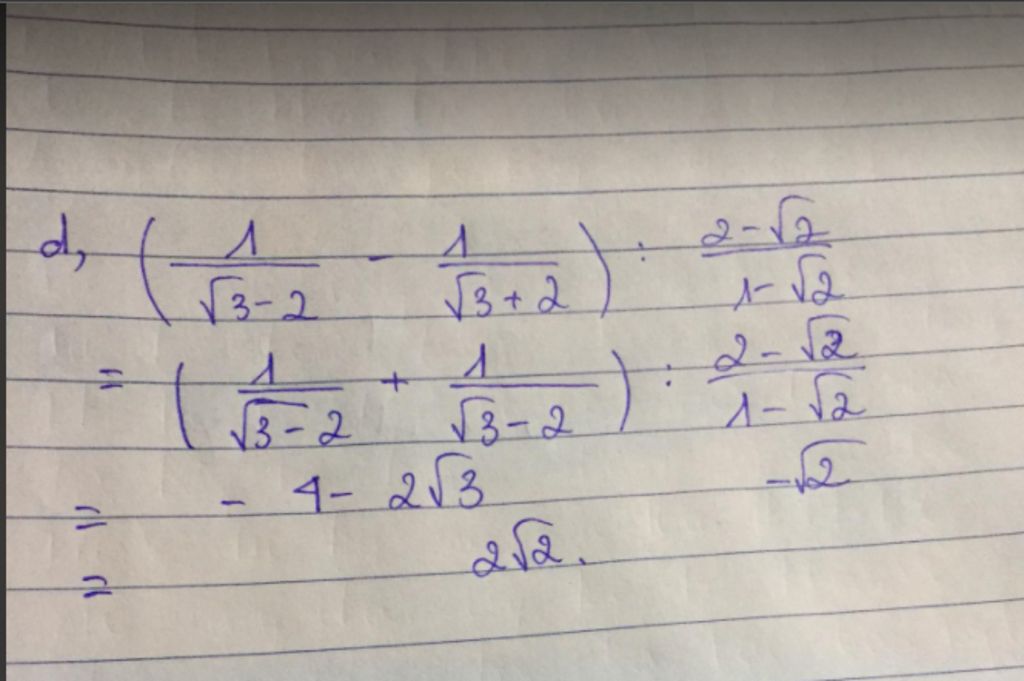 d, ( 1/(√3 - 2) - 1/(√3 + 2) ) : (2 - √2)/(1 - √2)
= ( 1/(√3 - 2) + 1/(√3 - 2) ) : (2 - √2)/(1 - √2)
= - 4 - 2√3 -√2
= 2√2.